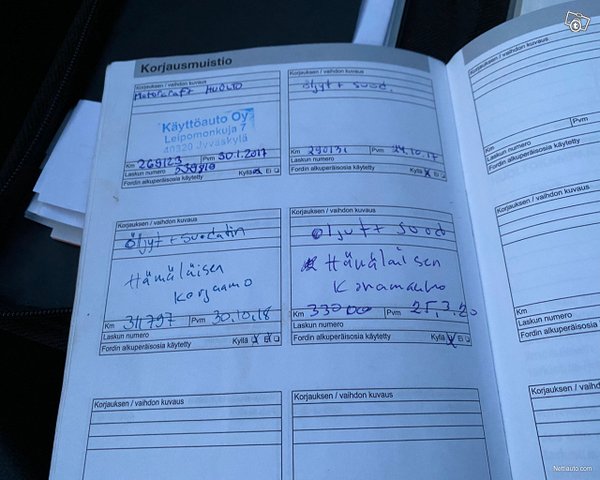 Korjausmuistio
Korjauksen / vaihdon kuvaus
Motorcraft HUOLTO
Käyttöauto Oy
Leipomonkuja 7
40320 Jyväskylä
Km 269123 Pvm 30.1.2017
Laskun numero
Fordin alkuperäisosia käytetty Kyllä Ei
Korjauksen / vaihdon kuvaus
öljyt + suod.
Km 290131 Pvm 24.10.17
Laskun numero
Fordin alkuperäisosia käytetty Kyllä Ei
Korjauksen / vaihdon kuvaus
öljyt + suodatin
Hämäläisen
korjaamo
Km 311797 Pvm 30.10.18
Laskun numero
Fordin alkuperäisosia käytetty Kyllä Ei
Korjauksen / vaihdon kuvaus
öljyt + suod
Hämäläisen
Km Pvm 25.3.20
Laskun numero
Fordin alkuperäisosia käytetty Kyllä Ei
Korjauksen / vaihdon kuvaus
Korjauksen / vaihdon kuvaus
Km Pvm
Laskun numero
Fordin alkuperäisosia käytetty
Korjauksen / vaihdon kuvaus
Km
Laskun numero
Fordin alkuperäisosia käytetty
Korjauksen / vaihdon kuvaus
Nettiauto.com